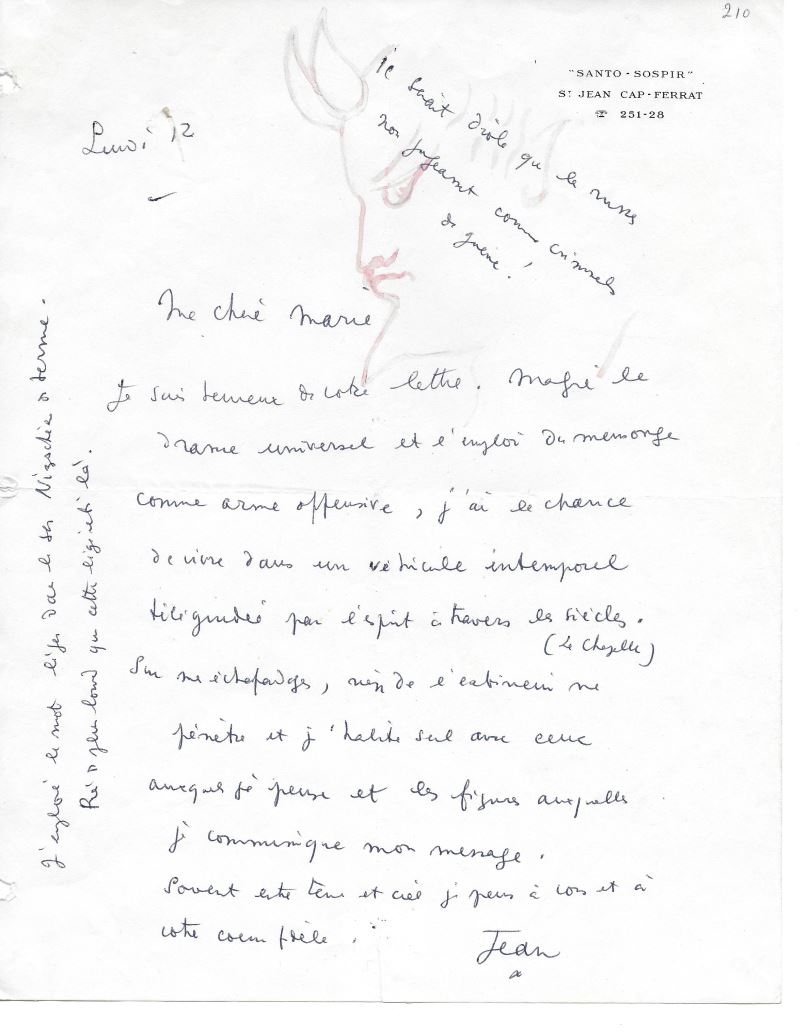 210
"SANTO-SOSPIR"
ST JEAN CAP-FERRAT
☎ 251-28
Lundi 12
il serait drôle que les russes
nous jugeassent comme criminels
de guerre!
Ma chère Marie
Je suis heureux de votre lettre. Malgré le
drame universel et l'emploi du mensonge
comme arme offensive, j'ai la chance
de vivre dans un véhicule intemporel
téléguidé par l'esprit à travers les siècles.
(La Chapelle)
Sur mes échafaudages, rien de l'
pénètre et j'habite seul avec ceux
auxquels je pense et les figures auxquelles
je communique mon message.
Souvent entre terre et ciel je pense à vous et à
votre coeur fidèle.
Jean
J'emploie le mot léger dans le sens Nietzschéen du terme.
Rien de plus lourd que cette légèreté là.